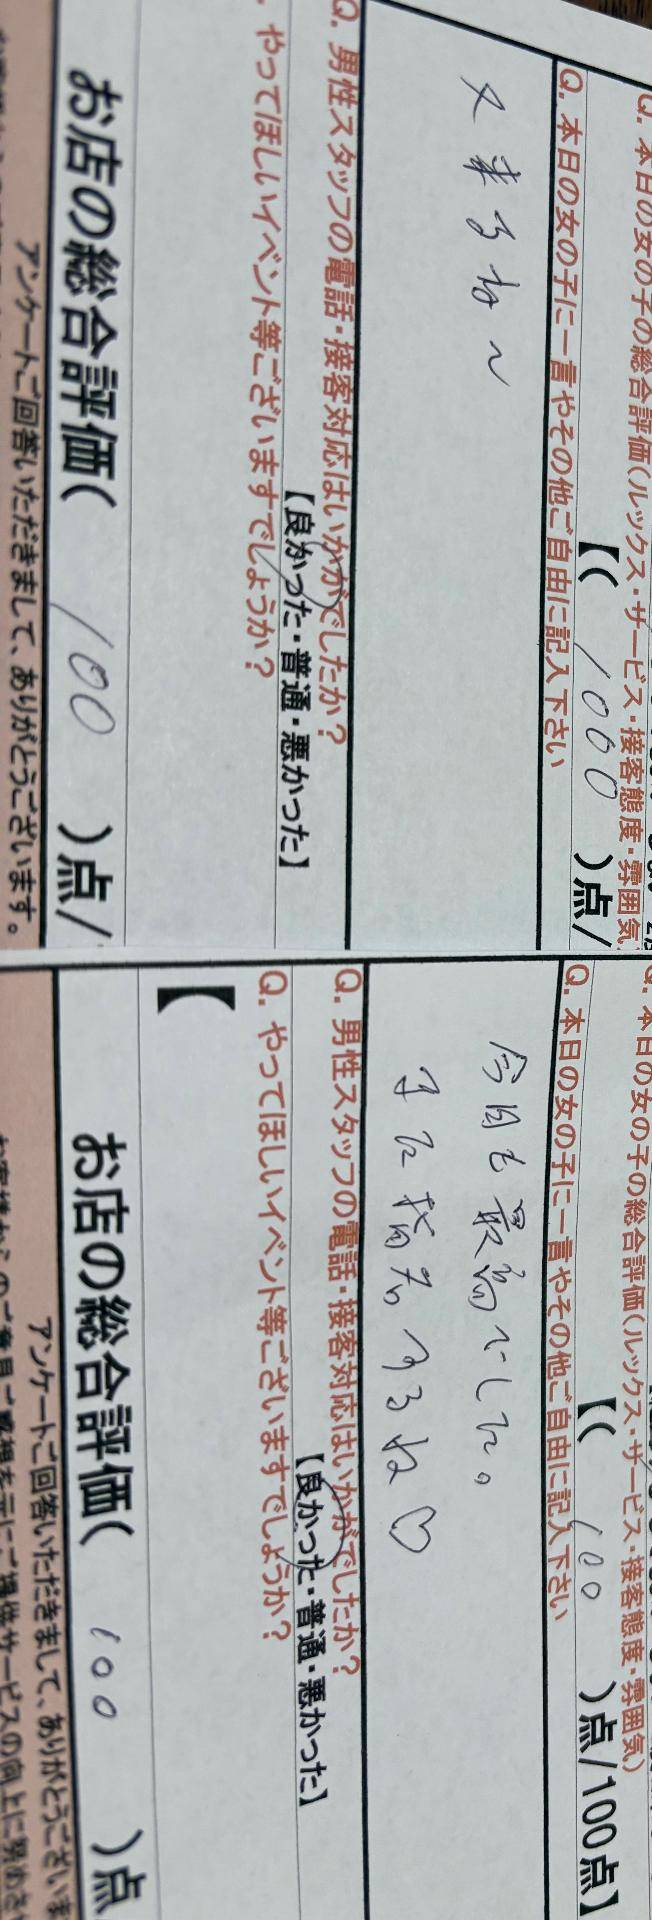 Q. 本日の女の子の総合評価(ルックス・サービス・接客態度・雰囲気
【( 1000 )点/
Q. 本日の女の子に一言やその他ご自由に記入下さい
又来るね〜
Q. 男性スタッフの電話・接客対応はいかがでしたか?
【良かった・普通・悪かった】
. やってほしいイベント等ございますでしょうか?
お店の総合評価( 100 )点/
アンケートご回答いただきまして、ありがとうございます。
Q. 本日の女の子の総合評価(ルックス・サービス・接客態度・雰囲気)
【( 100 )点/100点】
Q. 本日の女の子に一言やその他ご自由に記入下さい
今日も最高でした。
また指名するね♡
Q. 男性スタッフの電話・接客対応はいかがでしたか?
【良かった・普通・悪かった】
Q. やってほしいイベント等ございますでしょうか?
【
お店の総合評価( 100 )点
アンケートご回答いただきまして、ありがとうございま
お客様からのご意見ご感想を元にご提供サービスの向上に努めさ